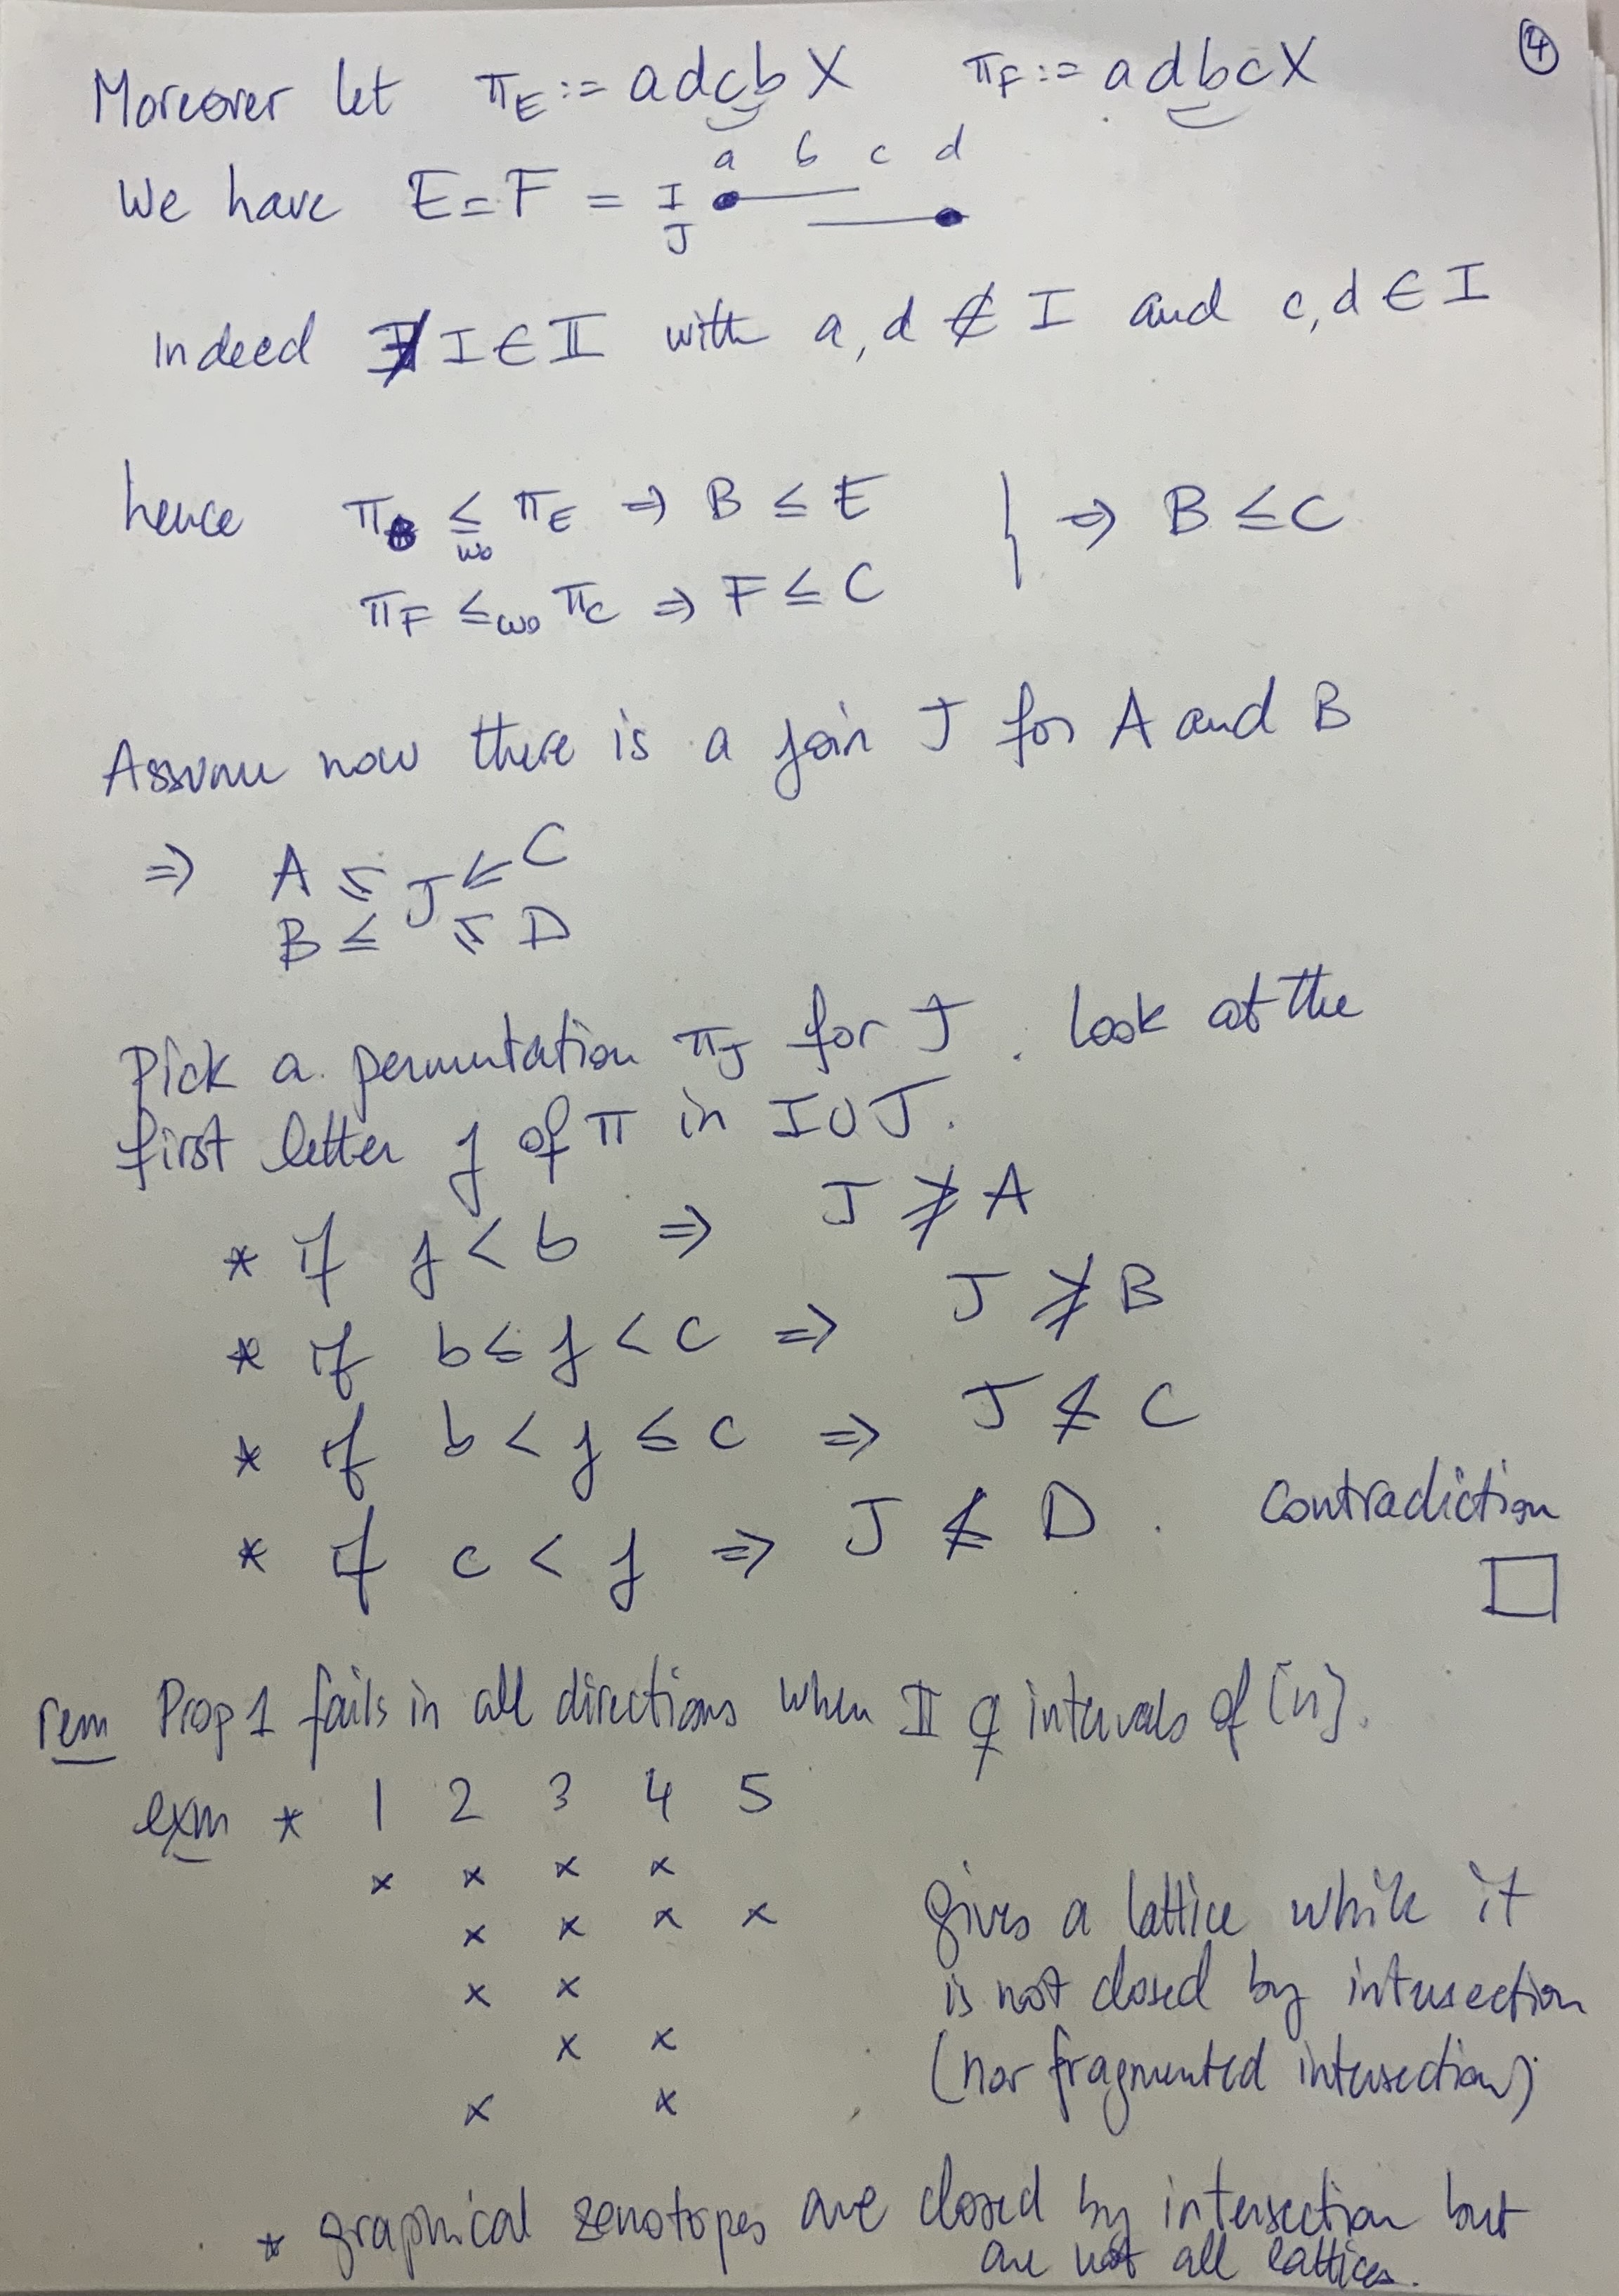 ④
Moreover let π_E := adcbX π_F := adbcX
a b c d
We have E = F = I
J
Indeed ∄ I ∈ 𝕀 with a, d ∉ I and c, d ∈ I
hence π_B ≤_wo π_E ⇒ B ≤ E } ⇒ B ≤ C
π_F ≤_wo π_C ⇒ F ≤ C
Assume now there is a join J for A and B
⇒ A ≤ J ≤ C
B ≤ ≤ D
Pick a permutation π_J for J. Look at the
first letter j of π in I∪J.
* if j < b ⇒ J ≱ A
* if b ≤ j < c ⇒ J ≱ B
* if b < j ≤ c ⇒ J ≰ C
* if c < j ⇒ J ≰ D. contradiction
□
rem Prop 1 fails in all directions when 𝕀 ⊄ intervals of [n].
exm * 1 2 3 4 5
x x x x
x x x x gives a lattice while it
x x is not closed by intersection
x x (nor fragmented intersection)
x x
* graphical zonotopes are closed by intersection but
are not all lattices.